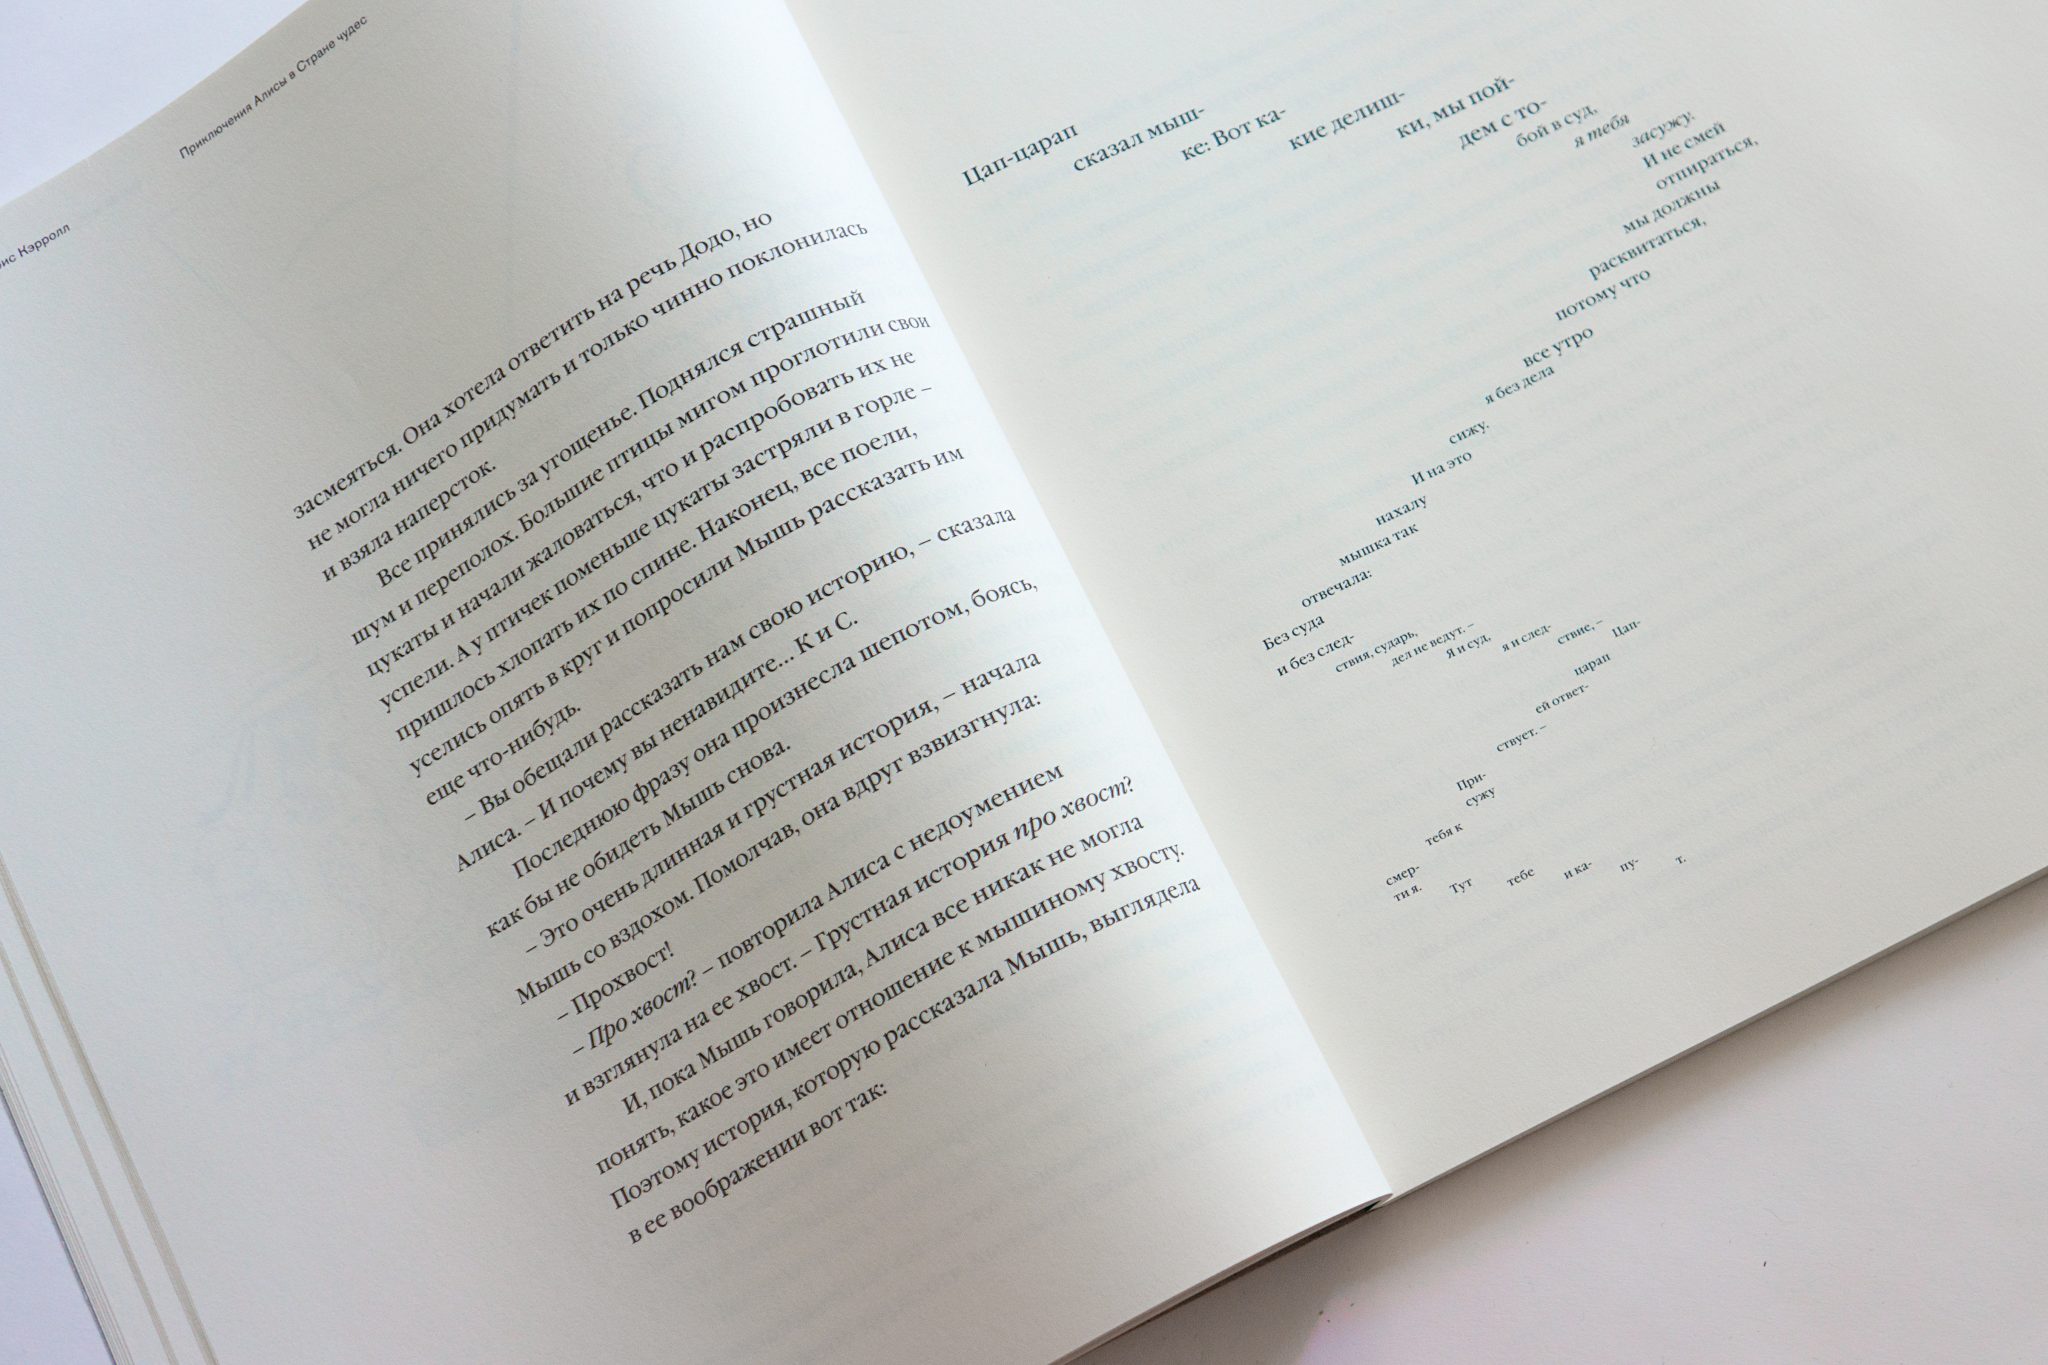 Кэрролл
Приключения Алисы в Стране чудес
засмеяться. Она хотела ответить на речь Додо, но
не могла ничего придумать и только чинно поклонилась
и взяла наперсток.
Все принялись за угощенье. Поднялся страшный
шум и переполох. Большие птицы мигом проглотили свои
цукаты и начали жаловаться, что и распробовать их не
успели. А у птичек поменьше цукаты застряли в горле –
пришлось хлопать их по спине. Наконец, все поели,
уселись опять в круг и попросили Мышь рассказать им
еще что-нибудь.
– Вы обещали рассказать нам свою историю, – сказала
Алиса. – И почему вы ненавидите... К и С.
Последнюю фразу она произнесла шепотом, боясь,
как бы не обидеть Мышь снова.
– Это очень длинная и грустная история, – начала
Мышь со вздохом. Помолчав, она вдруг взвизгнула:
– Прохвост!
– Про хвост? – повторила Алиса с недоумением
и взглянула на ее хвост. – Грустная история про хвост?
И, пока Мышь говорила, Алиса все никак не могла
понять, какое это имеет отношение к мышиному хвосту.
Поэтому история, которую рассказала Мышь, выглядела
в ее воображении вот так:
Цап-царап
сказал мыш-
ке: Вот ка-
кие делиш-
ки, мы пой-
дем с то-
бой в суд,
я тебя
засужу.
И не смей
отпираться,
мы должны
расквитаться,
потому что
все утро
я без дела
сижу.
И на это
нахалу
мышка так
отвечала:
Без суда
и без след-
ствия, сударь,
дел не ведут. –
Я и суд,
я и след-
ствие, –
Цап-
царап
ей ответ-
ствует. –
При-
сужу
тебя к
смер-
ти я.
Тут
тебе
и ка-
пу-
т.